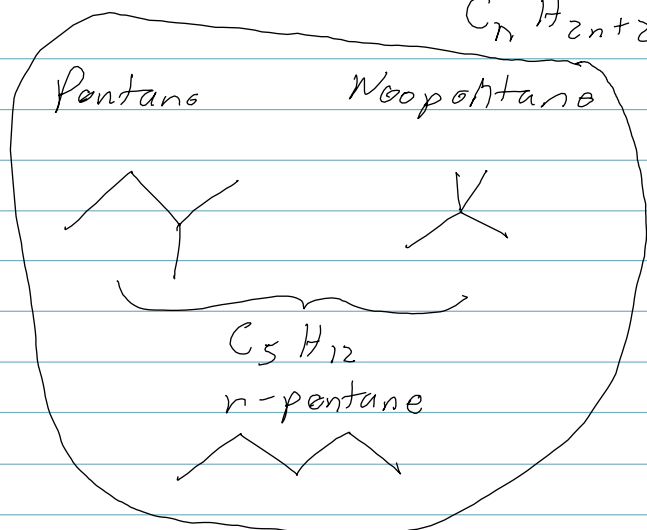 CnH2n+2
Pentane Neopentane
C5H12
n-pentane